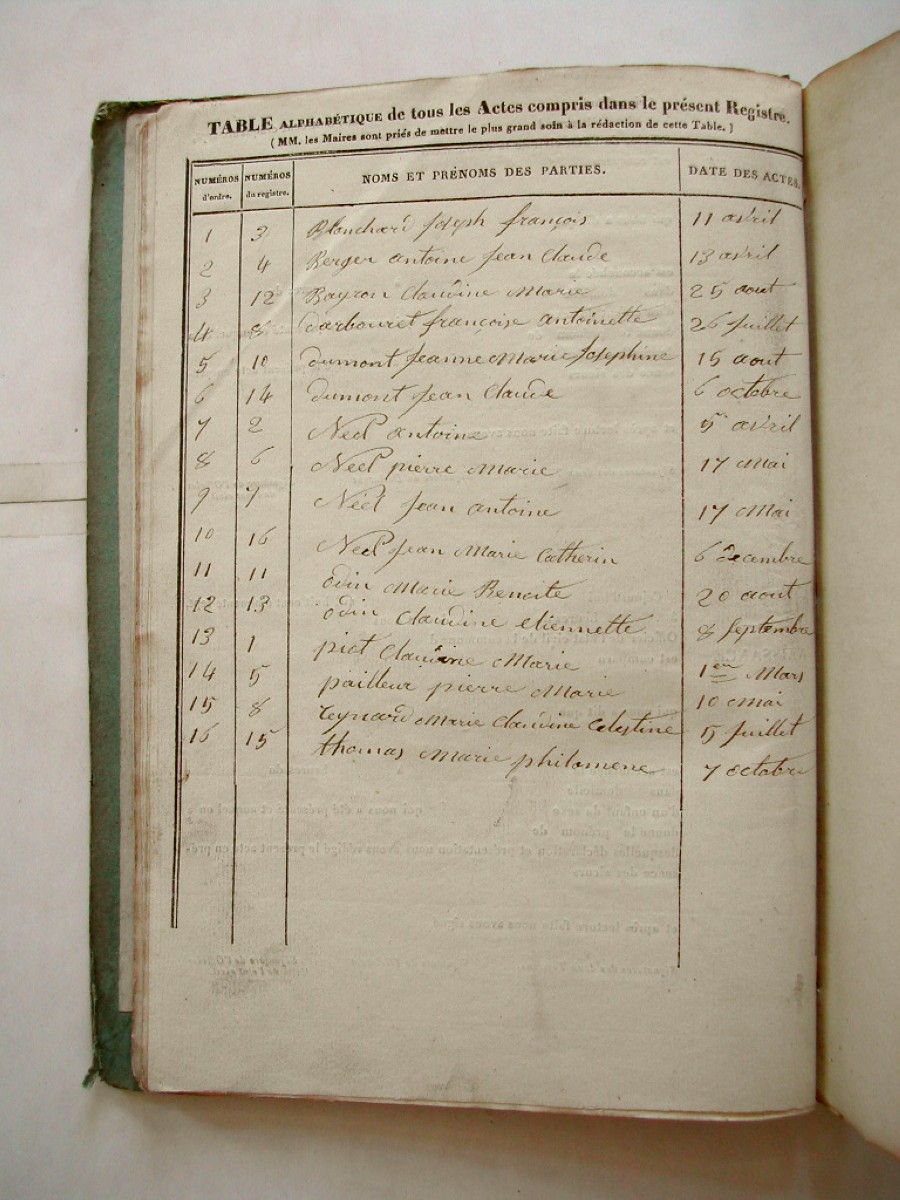 TABLE ALPHABÉTIQUE de tous les Actes compris dans le présent Registre.
( MM. les Maires sont priés de mettre le plus grand soin à la rédaction de cette Table. )
NUMÉROS d'ordre. NUMÉROS du registre. NOMS ET PRÉNOMS DES PARTIES. DATE DES ACTES.
1 3 Blanchard Joseph françois 11 avril
2 4 Berger antoine Jean Claude 13 avril
3 12 Bayron Claudine Marie 25 aout
4 darbouret françoise antoinette 26 Juillet
5 10 dumont Jeanne Marie Josephine 15 aout
6 14 dumont Jean Claude 6 octobre
7 2 Néel antoine 5 avril
8 6 Néel pierre Marie 17 Mai
9 7 Néel Jean antoine 17 Mai
10 16 Néel Jean Marie Catherin 6 decembre
11 11 odin Marie Benoite 20 aout
12 13 odin Claudine etiennette 8 Septembre
13 1 piot Claudine Marie 1er Mars
14 5 pailleur pierre Marie 10 mai
15 8 reynard Marie Claudine Celestine 5 Juillet
16 15 thomas Marie philomene 7 octobre